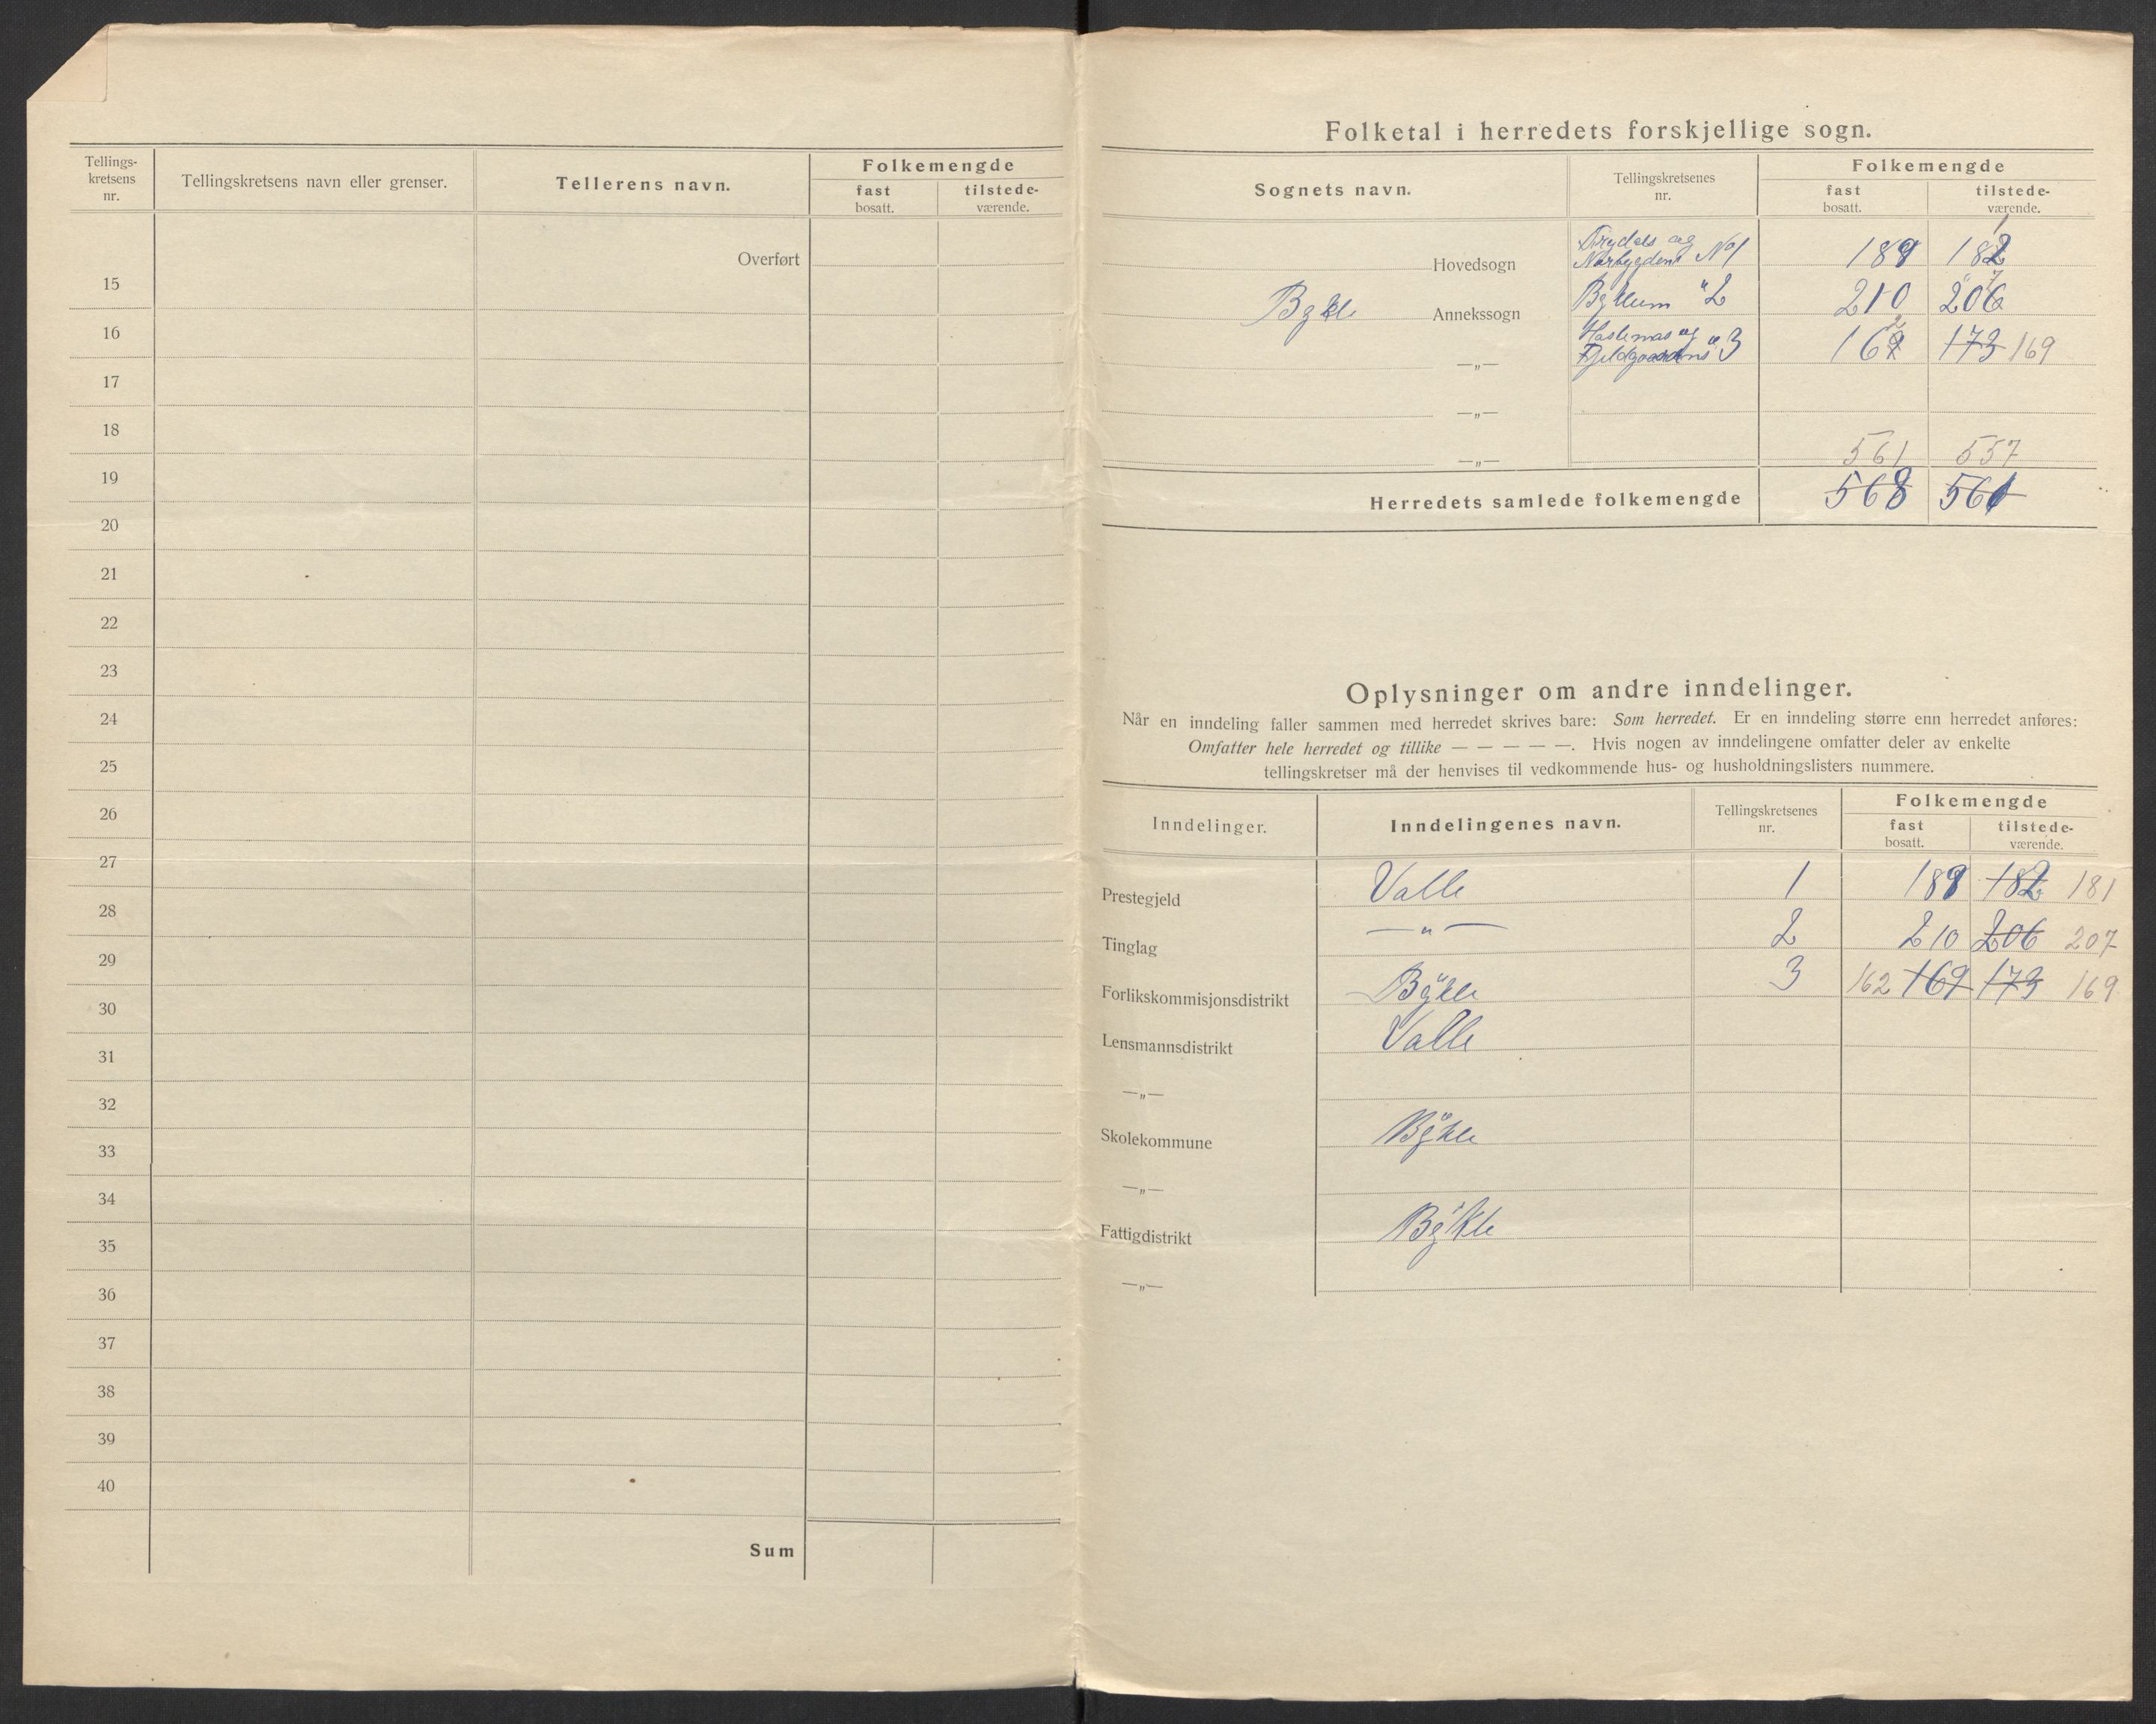 Tellings-
kretsens
nr.
Tellingskretsens navn eller grenser.
Tellerens navn.
Folkemengde
fast
bosatt.
tilstede-
værende.
Overført
15
16
17
18
19
20
21
22
23
24
25
26
27
28
29
30
31
32
33
34
35
36
37
38
39
40
Sum
Folketal i herredets forskjellige sogn.
Sognets navn.
Tellingskretsenes
nr.
Folkemengde
fast
bosatt.
tilstede-
værende.
Hovedsogn og No 1 189 182 1
Bykle Annekssogn Byklum " 2 210 206 7
—„— og " 3 169 2 173 169
—„—
—„— 561 557
Herredets samlede folkemengde 568 561
Oplysninger om andre inndelinger.
Når en inndeling faller sammen med herredet skrives bare: Som herredet. Er en inndeling større enn herredet anføres:
Omfatter hele herredet og tillike — — — — —. Hvis nogen av inndelingene omfatter deler av enkelte
tellingskretser må der henvises til vedkommende hus- og husholdningslisters nummere.
Inndelinger.
Inndelingenes navn.
Tellingskretsenes
nr.
Folkemengde
fast
bosatt.
tilstede-
værende.
Prestegjeld Valle 1 189 182 181
Tinglag —„— 2 210 206 207
Forlikskommisjonsdistrikt Bÿkle 3 162 169 173 169
Lensmannsdistrikt Valle
—„—
Skolekommune Bÿkle
—„—
Fattigdistrikt Bÿkle
—„—